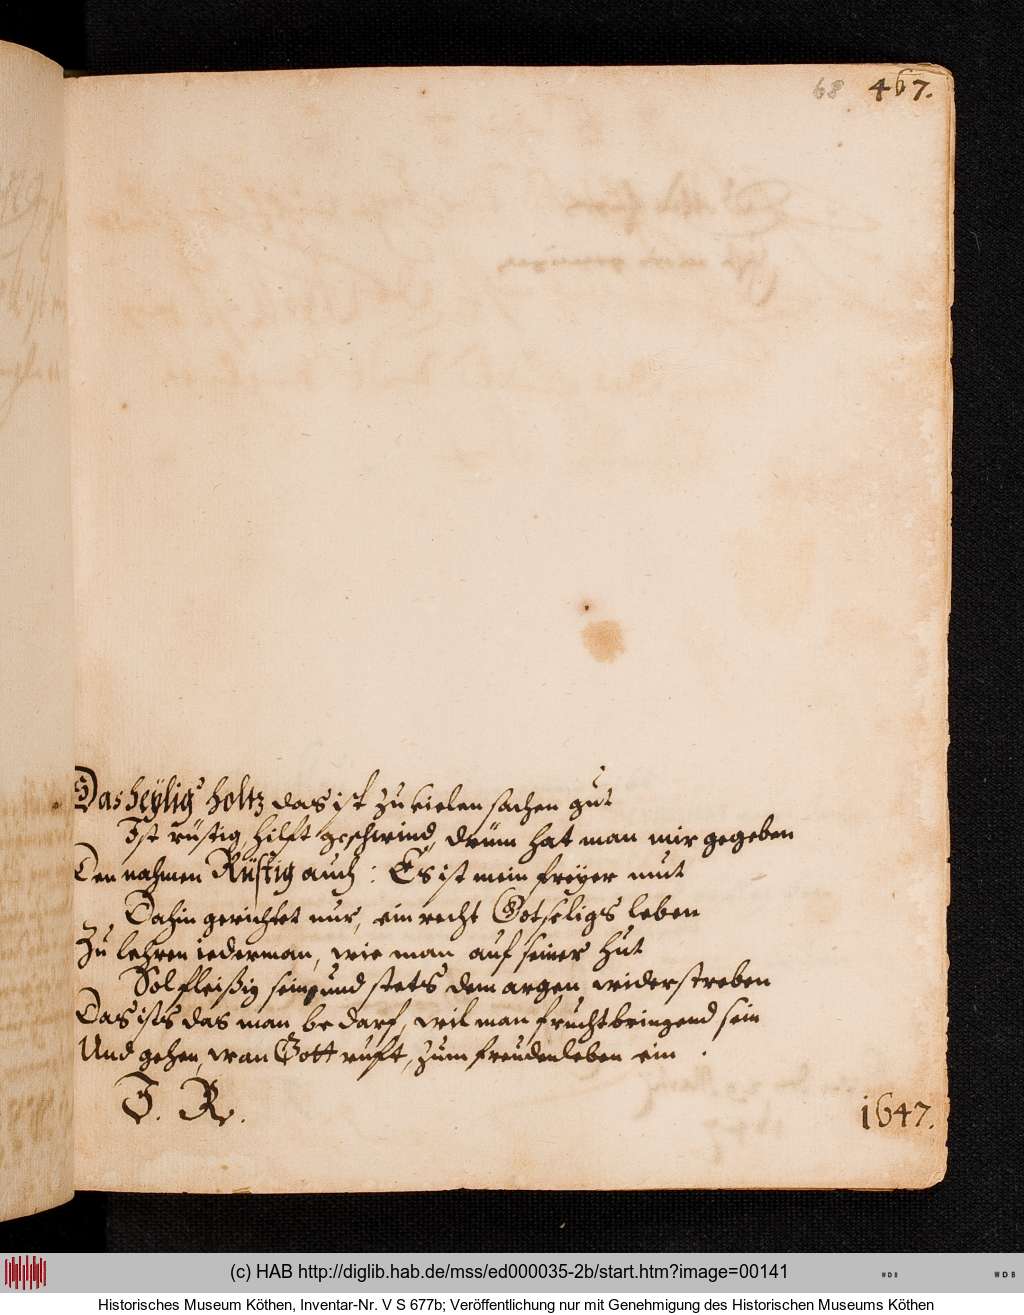 68 467.
Das heÿlig' holtz das ist zu vielen sachen gut
Ist rüstig, hilft geschwind, drüm hat man mir gegeben
Den nahmen Rüstig auch: Es ist mein freÿer mut
Dahin gerichtet nur, ein recht Gotseligs leben
Zu lehren iederman, wie man auf seiner hut
Sol fleißig sein, und stets dem argen widerstreben
Das ists das man bedarf, wil man fruchtbringend sein
Und gehen, wan Gott ruft, zum freudenleben ein.
J. R.
1647.
(c) HAB http://diglib.hab.de/mss/ed000035-2b/start.htm?image=00141
WDB
WDB
Historisches Museum Köthen, Inventar-Nr. V S 677b; Veröffentlichung nur mit Genehmigung des Historischen Museums Köthen